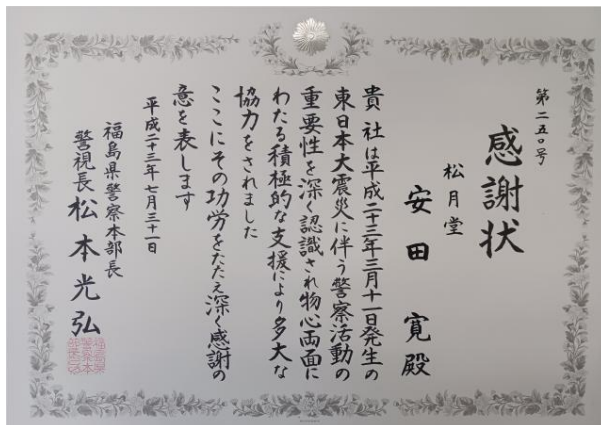 第二五〇号
感謝状
松月堂
安田寛殿
貴社は平成二十三年三月十一日発生の
東日本大震災に伴う警察活動の
重要性を深く認識され物心両面に
わたる積極的な支援により多大な
協力をされました
ここにその功労をたたえ深く感謝の
意を表します
平成二十三年七月三十一日
福島県警察本部長
警視長 松本光弘